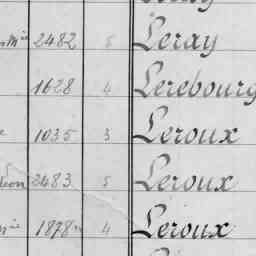 2482 5 Leray
1628 4 Lerebourg
1035 3 Leroux
2483 5 Leroux
1878 4 Leroux